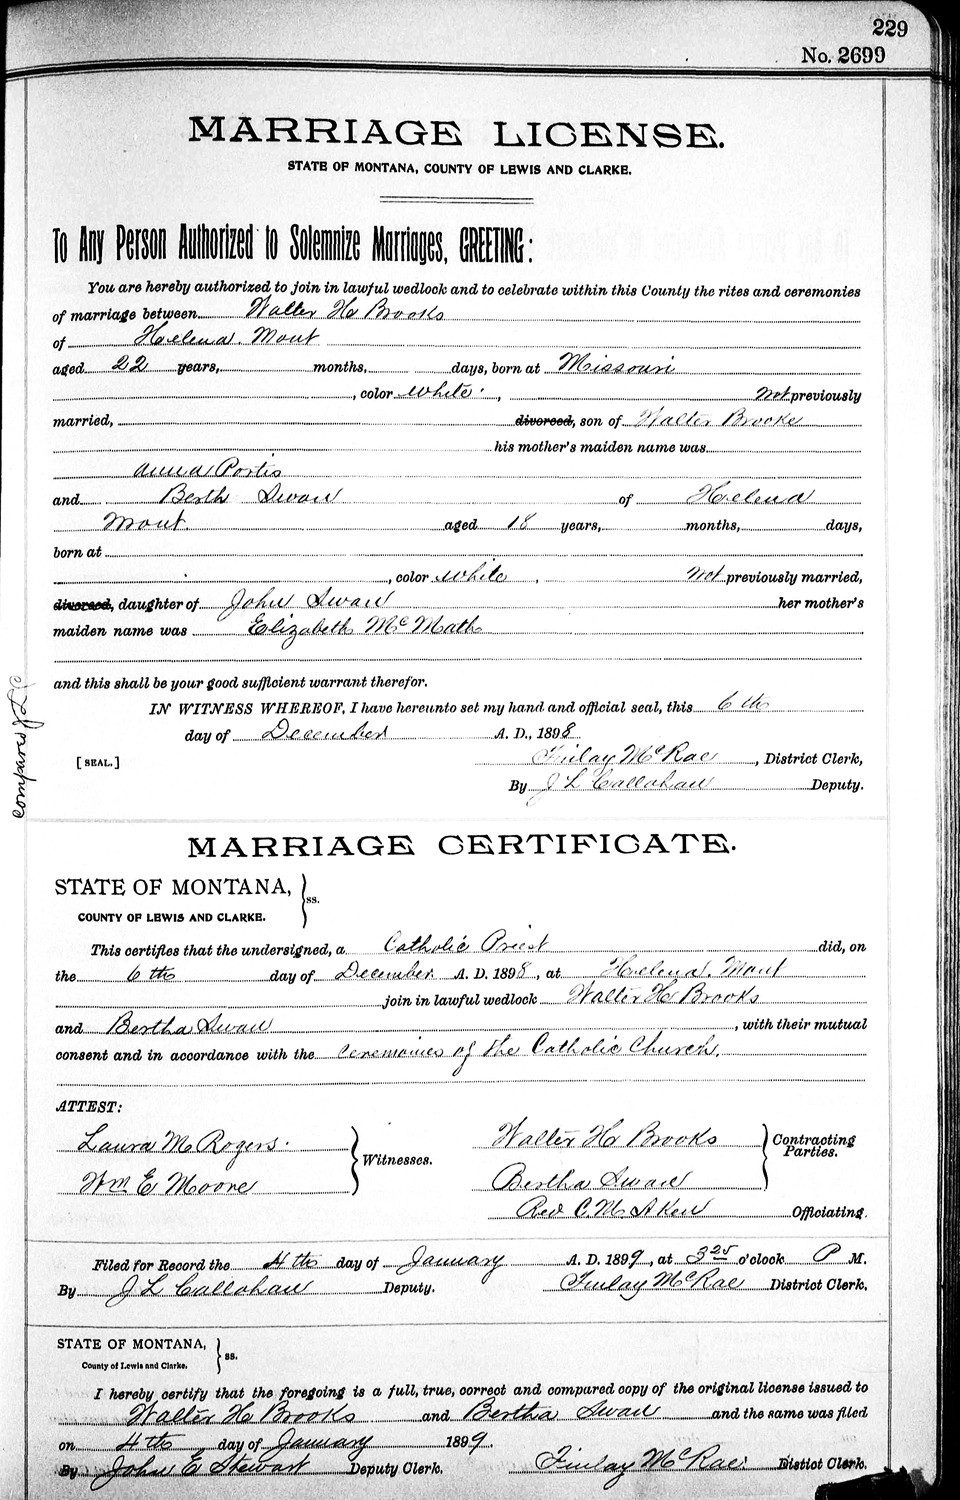 229
No. 2699
MARRIAGE LICENSE.
STATE OF MONTANA, COUNTY OF LEWIS AND CLARKE.
To Any Person Authorized to Solemnize Marriages, GREETING:
You are hereby authorized to join in lawful wedlock and to celebrate within this County the rites and ceremonies
of marriage between Walter H Brooks
of Helena. Mont
aged 22 years, months, days, born at Missouri
, color White , Not previously
married, divorced, son of Walter Brooks
his mother's maiden name was
Anna Portis
and Berth Swan of Helena
Mont aged 18 years, months, days,
born at
, color White , Not previously married,
divorced, daughter of John Swan her mother's
maiden name was Elizabeth McMath
and this shall be your good sufficient warrant therefor.
IN WITNESS WHEREOF, I have hereunto set my hand and official seal, this 6th
day of December A. D., 1898
[SEAL.] Finlay McRae , District Clerk,
By J L Callahan Deputy.
compared
MARRIAGE CERTIFICATE.
STATE OF MONTANA, ss.
COUNTY OF LEWIS AND CLARKE.
This certifies that the undersigned, a Catholic Priest did, on
the 6th day of December A. D. 1898, at Helena. Mont
join in lawful wedlock Walter H Brooks
and Bertha Swan , with their mutual
consent and in accordance with the Ceremonies of the Catholic Church.
ATTEST:
Laura M Rogers. Witnesses. Walter H Brooks Contracting Parties.
Wm E Moore Bertha Swan
Rev C. M. Aken Officiating.
Filed for Record the 4th day of January A. D. 1899, at 3 25 o'clock P M.
By J L Callahan Deputy. Finlay McRae District Clerk.
STATE OF MONTANA, ss.
County of Lewis and Clarke.
I hereby certify that the foregoing is a full, true, correct and compared copy of the original license issued to
Walter H Brooks and Bertha Swan and the same was filed
on 4th day of January 1899.
By John E Stewart Deputy Clerk. Finlay McRae. Distict Clerk.